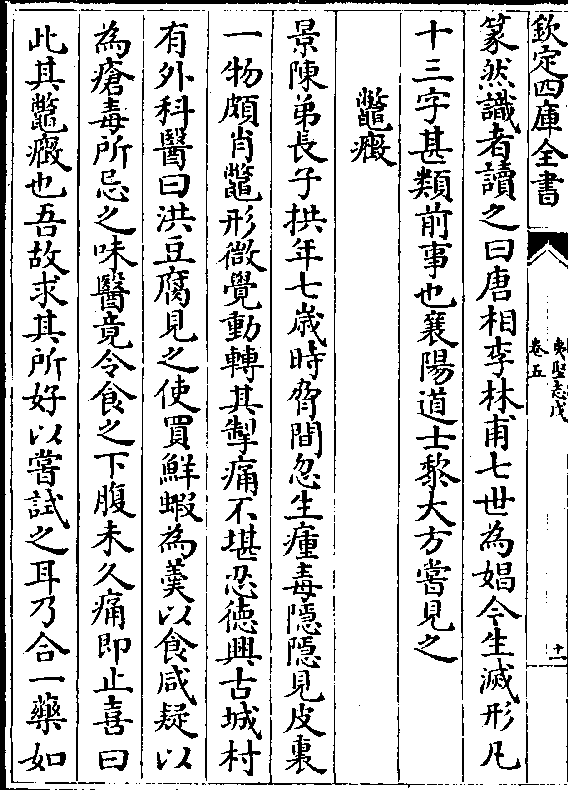 欽定四庫全書
夷堅志戊
卷五
十一
篆然識者讀之曰唐相李林甫七世為娼今生滅形凡
十三字甚類前事也襄陽道士黎大方嘗見之
鼈癥
景陳弟長子拱年七歲時脅間忽生腫毒隠隠見皮裏
一物頗肖鼈形微覺動轉其掣痛不堪忍徳興古城村
有外科醫曰洪豆腐見之使買鮮蝦為羮以食咸疑以
為瘡毒所忌之味醫竟令食之下腹未久痛即止喜曰
此其鼈癥也吾故求其所好以嘗試之耳乃合一藥如